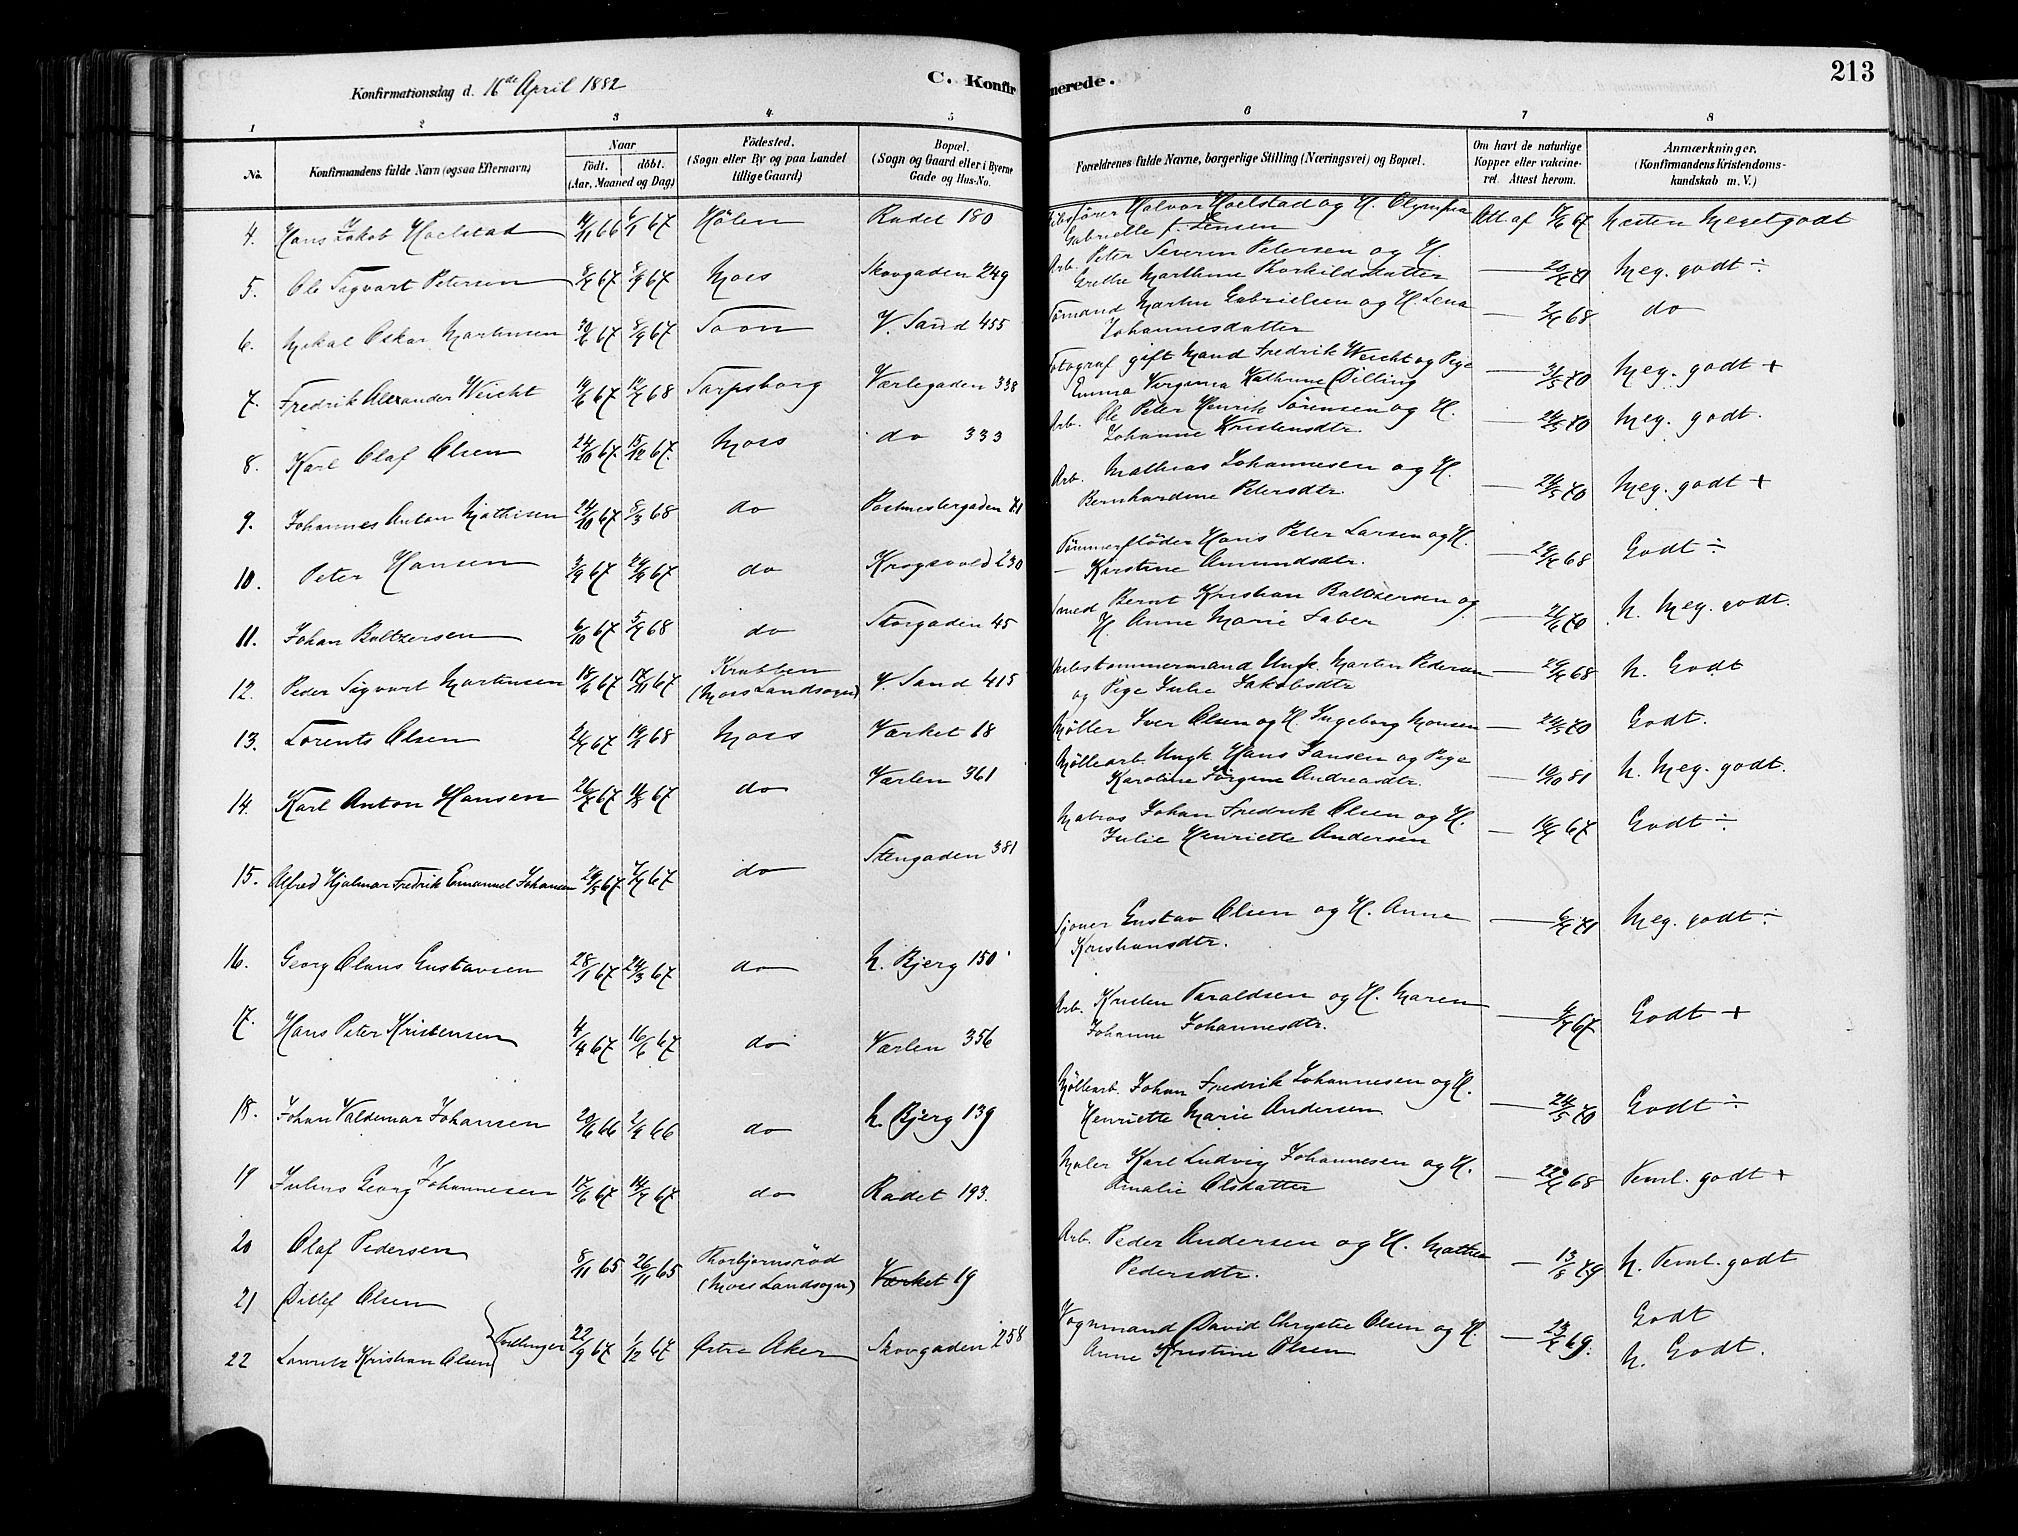 Konfirmationsdag d. 16de April 1882
C. Konfir
merede.
213
1 2 3 4 5 6 7 8
No.
Konfirmandens fulde Navn (ogsaa Efternavn)
Naar
födt. döbt.
(Aar, Maaned og Dag)
Födested.
(Sogn eller By og paa Landet
tillige Gaard)
Bopæl.
(Sogn og Gaard eller i Byerne
Gade og Hus-No.
Forældrenes fulde Navne, borgerlige Stilling (Næringsvei) og Bopæl.
Om havt de naturlige
Kopper eller vakcine-
ret. Attest herom.
Anmærkninger,
(Konfirmandens Kristendoms-
kundskab m. V.)
4. Hans Jakob Hoelstad 14/11 66 6/1 67 Hölen Radet 180 Halvor Hoelstad og H. Olympia
Gabrielle f. Jensen Att. af 17/6 67 Næsten Meget godt
5. Ole Sigvart Petersen 67 67 Moss Skovgaden 249 Arb. Peter Severin Petersen og H.
Grethe Marthine Thorkildsdatter Meg. godt ÷
6. Mikal Oskar Martinsen 30/6 67 8/9 67 Soon V. Sand 455 Martin Gabrielsen og H. Lena
Johannesdatter 68 do
7. Fredrik Alexander Weicht 14/6 67 68 Sarpsborg Værlegaden 338 Fotograf gift Mand Fredrik Weicht og Pige
Emma Virginia Kathrine Dilling 31/5 70 Meg. godt +
8. Karl Olaf Olsen 24/10 67 15/12 67. Moss do 333 Arb. Ole Peter Henrik Sørensen og H.
Johanne Kristensdtr. 24/5 70 Meg. godt.
9. Johannes Anton Mathisen 24/10 67 8/3 68 do Postmestergaden 71 Arb. Mathias Johannesen og H.
Bernhardine Petersdtr. 24/5 70 Meg. godt +
10. Peter Hansen 3/9 67 67 do Krogsvold 230 Tømmerflöder Hans Peter Larsen og H.
Kirstine Amundsdtr. 68 Godt ÷
11. Johan Baltzersen 6/10 67 68 do Storgaden 45 Smed Bernt Kristian Baltzersen og
H. Anne Marie Faber 70 N. Meg. godt.
12. Peder Sigvart Martinsen 18/6 67 17/11 67 Krabben
(Moss Landsogn) V. Sand 415 Ungk. Martin Pedersen
og Pige Julie Jakobsdtr 68 N. Godt
13. Lorents Olsen 67 68 Moss Værket 18 Møller Iver Olsen og H. Ingeborg Monsen 24/5 70 Godt.
14. Karl Anton Hansen 67 67 do Værlen 361 Møllearb. Ungk. Hans Jansen og Pige
Karoline Jörgine Andreasdtr. 10/10 81 N. Meg. godt.
15. Alfred Hjalmar Fredrik Emanuel Johansen 29/5 67 67 do Stengaden 381 Matros Johan Fredrik Olsen og H.
Julie Henriette Andersen 67 Godt ÷
16. Georg Olaus Gustavsen 28/1 67 24/3 67 do N. Bjerg 150 Gustav Olsen og H. Anne
Kristiansdtr. 71 Meg. godt ÷
17. Hans Peter Kristensen 4/4 67 16/6 67 do Værlen 356 Arb. Kristen Taraldsen og H. Maren
Johanne Johannesdtr. 67 Godt +
18. Johan Valdemar Johansen 20/6 66 2/9 66 do N. Bjerg 139 Møllearb. Johan Fredrik Johannesen og H.
Henriette Marie Andersen 24/5 70 Godt ÷
19 Julius Georg Johannesen 17/6 67 14/7 67 do Radet 193. Maler Karl Ludvig Johannesen og H.
Amalie Olsdatter 68 Teml. godt +
20 Olaf Pedersen 8/11 65 26/11 65 Thorbjørnsröd
(Moss Landsogn) Værket 19 Arb. Peder Andersen og H. Mathea
Pedersdtr. 13/8 79 N. Teml. godt
21 Ditlef Olsen Godt
22 Lauritz Kristian Olsen } Tvillinger 22/9 67 1/12 67 Østre Aker Skovgaden 258 Vognmand David Chrystie Olsen og H.
Anne Kristine Olsen 69. N. Godt.